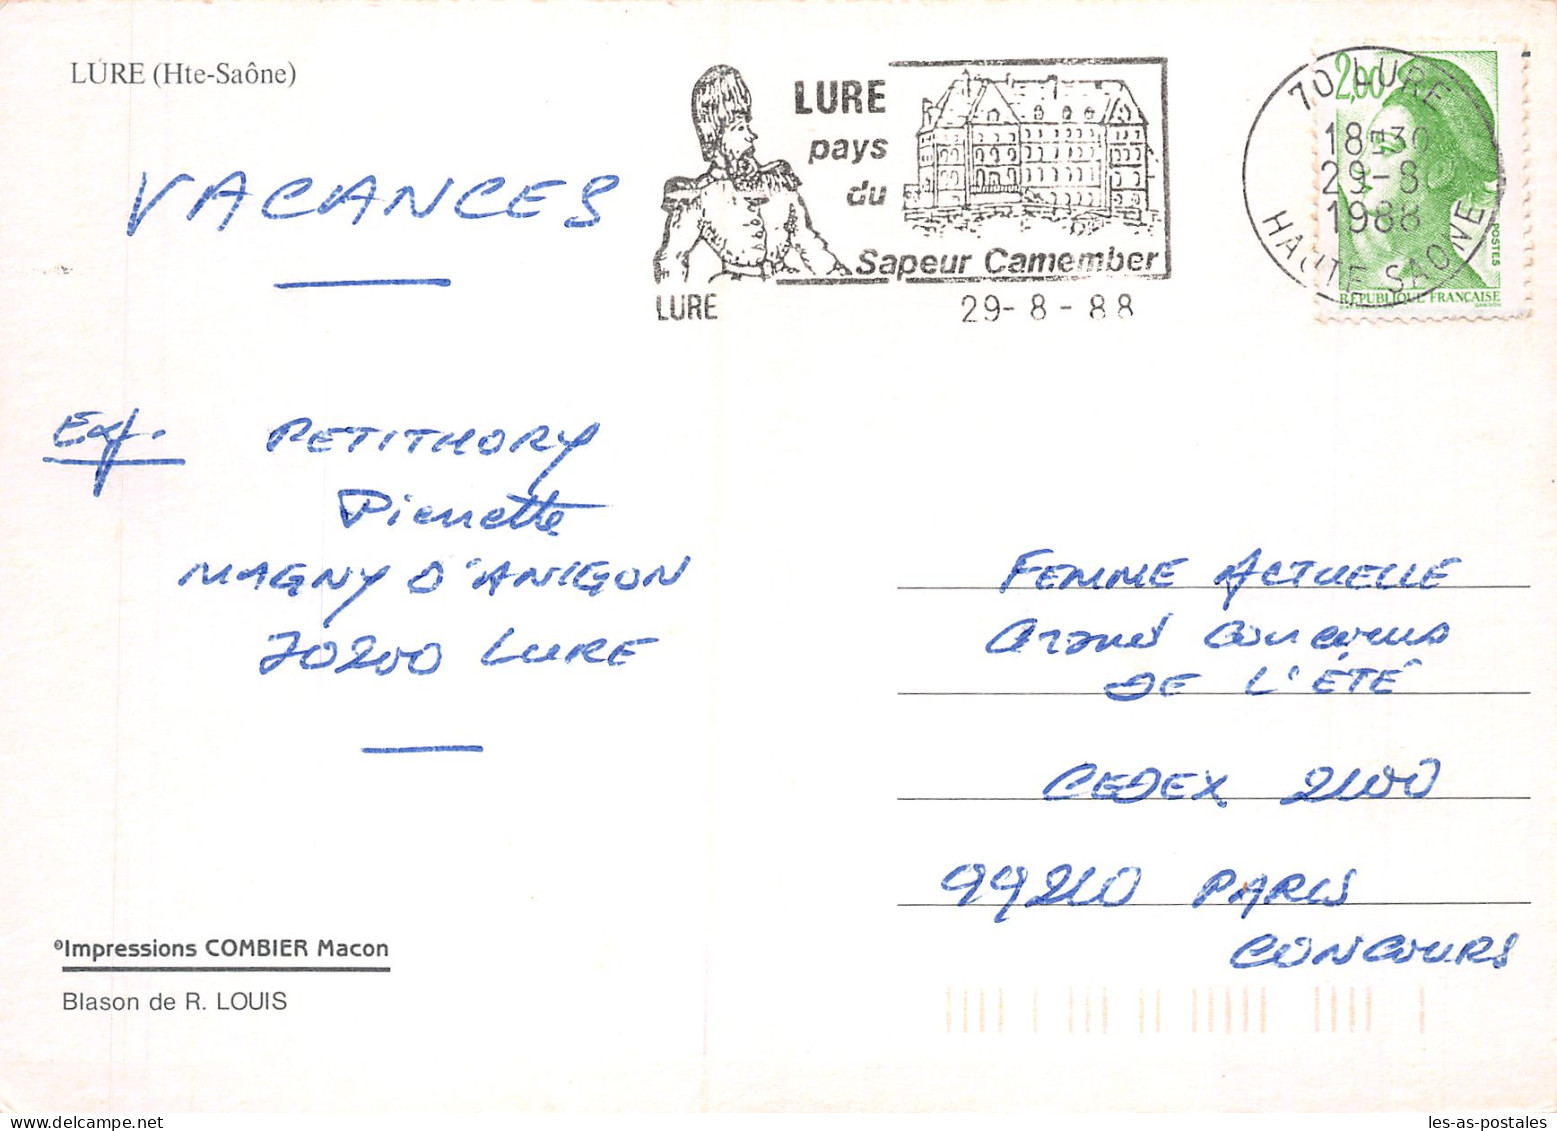 LURE (Hte-Saône)
VACANCES
Exp. PETITHORY
Pierrette
MAGNY D'ANIGON
70200 LURE
©Impressions COMBIER Macon
Blason de R. LOUIS
LURE
pays
du
Sapeur Camember
LURE 29-8-88
70 LURE
18H30
29-8
1988
HAUTE SAONE
2,00
POSTES
REPUBLIQUE FRANÇAISE
GANDON
FEMME ACTUELLE
Grand Concours
DE L'ÉTÉ
CEDEX 2100
99210 PARIS
CONCOURS
les-as-postales